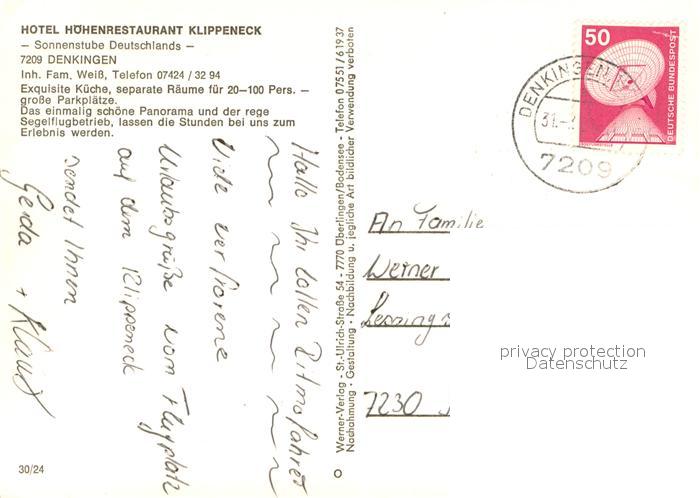 HOTEL HÖHENRESTAURANT KLIPPENECK
– Sonnenstube Deutschlands –
7209 DENKINGEN
Inh. Fam. Weiß, Telefon 07424 / 32 94
Exquisite Küche, separate Räume für 20–100 Pers. –
große Parkplätze.
Das einmalig schöne Panorama und der rege
Segelflugbetrieb, lassen die Stunden bei uns zum
Erlebnis werden.
Hallo Ihr tollen Ritmofahrer
Viele verfrorene
Urlaubsgrüße vom Flugplatz
auf dem Klippeneck
sendet Ihnen
Gerda + Klaus
30/24
Werner-Verlag - St.-Ulrich-Straße 54 - 7770 Überlingen/Bodensee - Telefon 07551/61937
Nachahmung - Gestaltung - Nachbildung u. jegliche Art bildlicher Verwendung verboten
50
DEUTSCHE BUNDESPOST
DENKINGEN
31.
7209
An Familie
Werner
Lessing
7230
privacy protection
Datenschutz